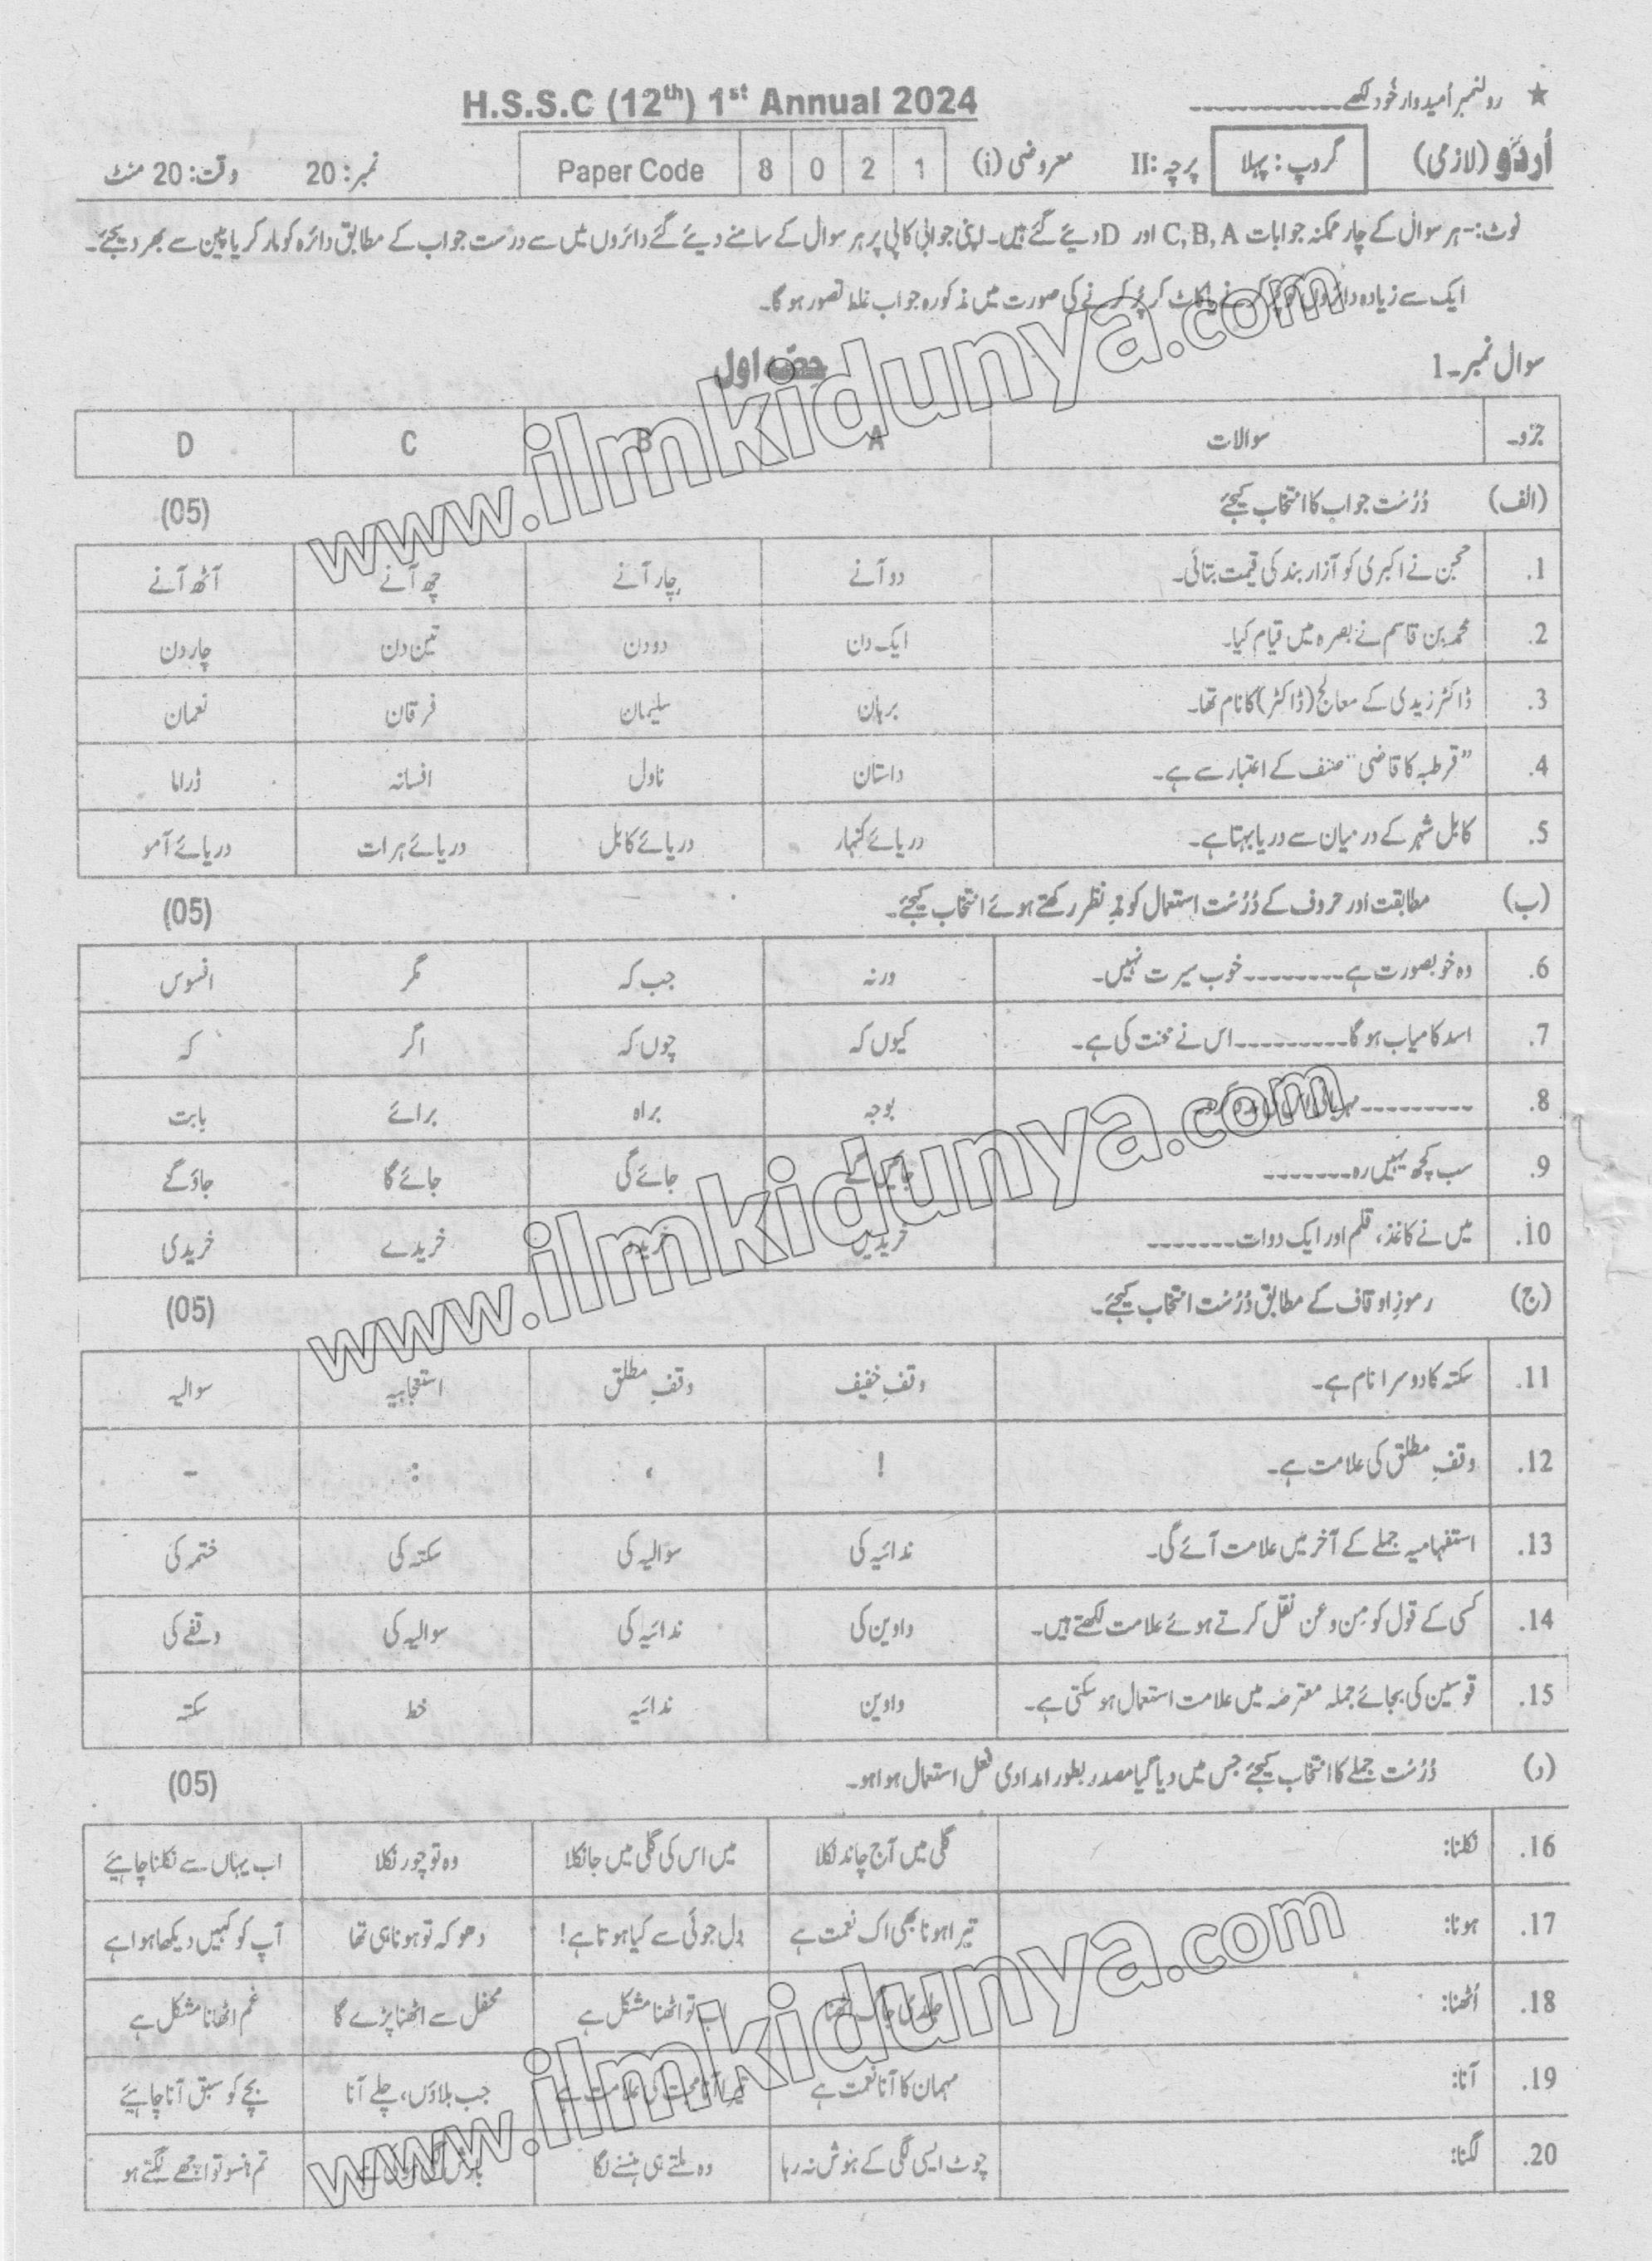 ★ رولنمبر اُمیدوار خُود لکھے۔
H.S.S.C (12th) 1st Annual 2024
اُردُو (لازمی) گروپ: پہلا پرچہ: II معروضی (i) Paper Code 8 0 2 1 نمبر: 20 وقت: 20 منٹ
نوٹ:- ہر سوال کے چار ممکنہ جوابات C, B, A اور D دیئے گئے ہیں۔ اپنی جوابی کاپی پر ہر سوال کے سامنے دیئے گئے دائروں میں سے درست جواب کے مطابق دائرہ کو مارکر یا پین سے بھر دیجئے۔
ایک سے زیادہ دائروں کو پُر کرنے یا کاٹ کر پُر کرنے کی صورت میں مذکورہ جواب غلط تصور ہوگا۔
سوال نمبر۔1 حصّہ اول
جزو۔ سوالات A B C D
(الف) دُرُست جواب کا انتخاب کیجئے (05)
1. حجن نے اکبری کو آزار بند کی قیمت بتائی۔ دو آنے چار آنے چھ آنے آٹھ آنے
2. محمد بن قاسم نے بصرہ میں قیام کیا۔ ایک دن دو دن تین دن چار دن
3. ڈاکٹر زیدی کے معالج (ڈاکٹر) کا نام تھا۔ برہان سلیمان فرقان نعمان
4. "قرطبہ کا قاضی" صنف کے اعتبار سے ہے۔ داستان ناول افسانہ ڈراما
5. کابل شہر کے درمیان سے دریا بہتا ہے۔ دریائے کنہار دریائے کابل دریائے ہرات دریائے آمو
(ب) مطابقت اور حروف کے دُرُست استعمال کو مدِ نظر رکھتے ہوئے انتخاب کیجئے۔ (05)
6. وہ خوبصورت ہے -------- خوب سیرت نہیں۔ ورنہ جب کہ مگر افسوس
7. اسد کامیاب ہوگا --------- اس نے محنت کی ہے۔ کیوں کہ چوں کہ اگر کہ
8. --------- مہربانی بوجہ براہ برائے بابت
9. سب کچھ یہیں رہ ------- جائیں گے جائے گی جائے گا جاؤ گے
10. میں نے کاغذ، قلم اور ایک دوات ------- خریدیں خریدے خریدی
(ج) رموزِ اوقاف کے مطابق دُرُست انتخاب کیجئے۔ (05)
11. سکتہ کا دوسرا نام ہے۔ وقفِ خفیف وقفِ مطلق استعجابیہ سوالیہ
12. وقفِ مطلق کی علامت ہے۔ ! ، : ۔
13. استفہامیہ جملے کے آخر میں علامت آئے گی۔ ندائیہ کی سوالیہ کی سکتہ کی ختمہ کی
14. کسی کے قول کو من و عن نقل کرتے ہوئے علامت لکھتے ہیں۔ واوین کی ندائیہ کی سوالیہ کی وقفے کی
15. قوسین کی بجائے جملہ معترضہ میں علامت استعمال ہو سکتی ہے۔ واوین ندائیہ خط سکتہ
(د) دُرُست جملے کا انتخاب کیجئے جس میں دیا گیا مصدر بطور امدادی فعل استعمال ہوا ہو۔ (05)
16. نکلنا: گلی میں آج چاند نکلا میں اس کی گلی میں جا نکلا وہ تو چور نکلا اب یہاں سے نکلنا چاہیئے
17. ہونا: تیرا ہونا بھی اک نعمت ہے دل جوئی سے کیا ہوتا ہے! دھوکہ تو ہونا ہی تھا آپ کو کہیں دیکھا ہوا ہے
18. اُٹھنا: جلدی جاگ اٹھنا اب تو اٹھنا مشکل ہے محفل سے اٹھنا پڑے گا غم اٹھانا مشکل ہے
19. آنا: مہمان کا آنا نعمت ہے تیرا آنا محبت کی علامت ہے جب بلاؤں، چلے آنا بچے کو سبق آنا چاہیئے
20. لگنا: چوٹ ایسی لگی کے ہوش نہ رہا وہ ملتے ہی ہنسنے لگا تم ہنسو تو اچھے لگتے ہو
www.ilmkidunya.com
www.ilmkidunya.com
www.ilmkidunya.com